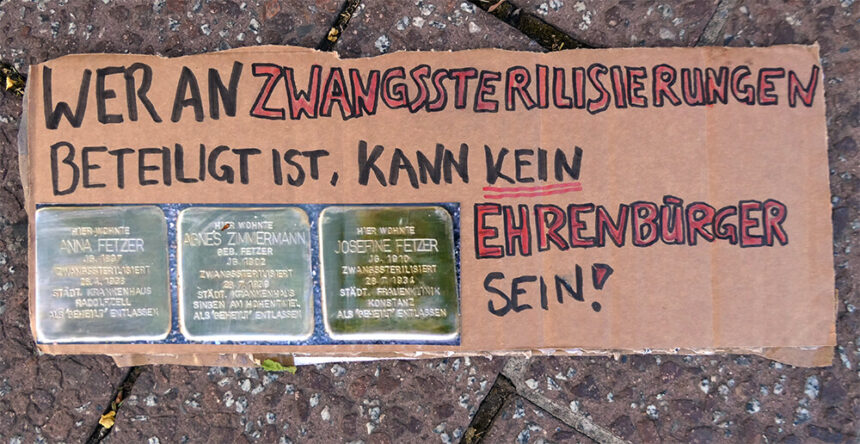 WER AN ZWANGSSTERILISIERUNGEN
BETEILIGT IST, KANN KEIN
EHRENBÜRGER
SEIN!
HIER WOHNTE
ANNA FETZER
JG. 1897
ZWANGSSTERILISIERT
STÄDT. KRANKENHAUS
RADOLFZELL
ALS "GEHEILT" ENTLASSEN
HIER WOHNTE
AGNES ZIMMERMANN
GEB. FETZER
JG. 1902
ZWANGSSTERILISIERT
STÄDT. KRANKENHAUS
SINGEN AM HOHENTWIEL
ALS "GEHEILT" ENTLASSEN
HIER WOHNTE
JOSEFINE FETZER
JG. 1910
ZWANGSSTERILISIERT
STÄDT. FRAUENKLINIK
KONSTANZ
ALS "GEHEILT" ENTLASSEN